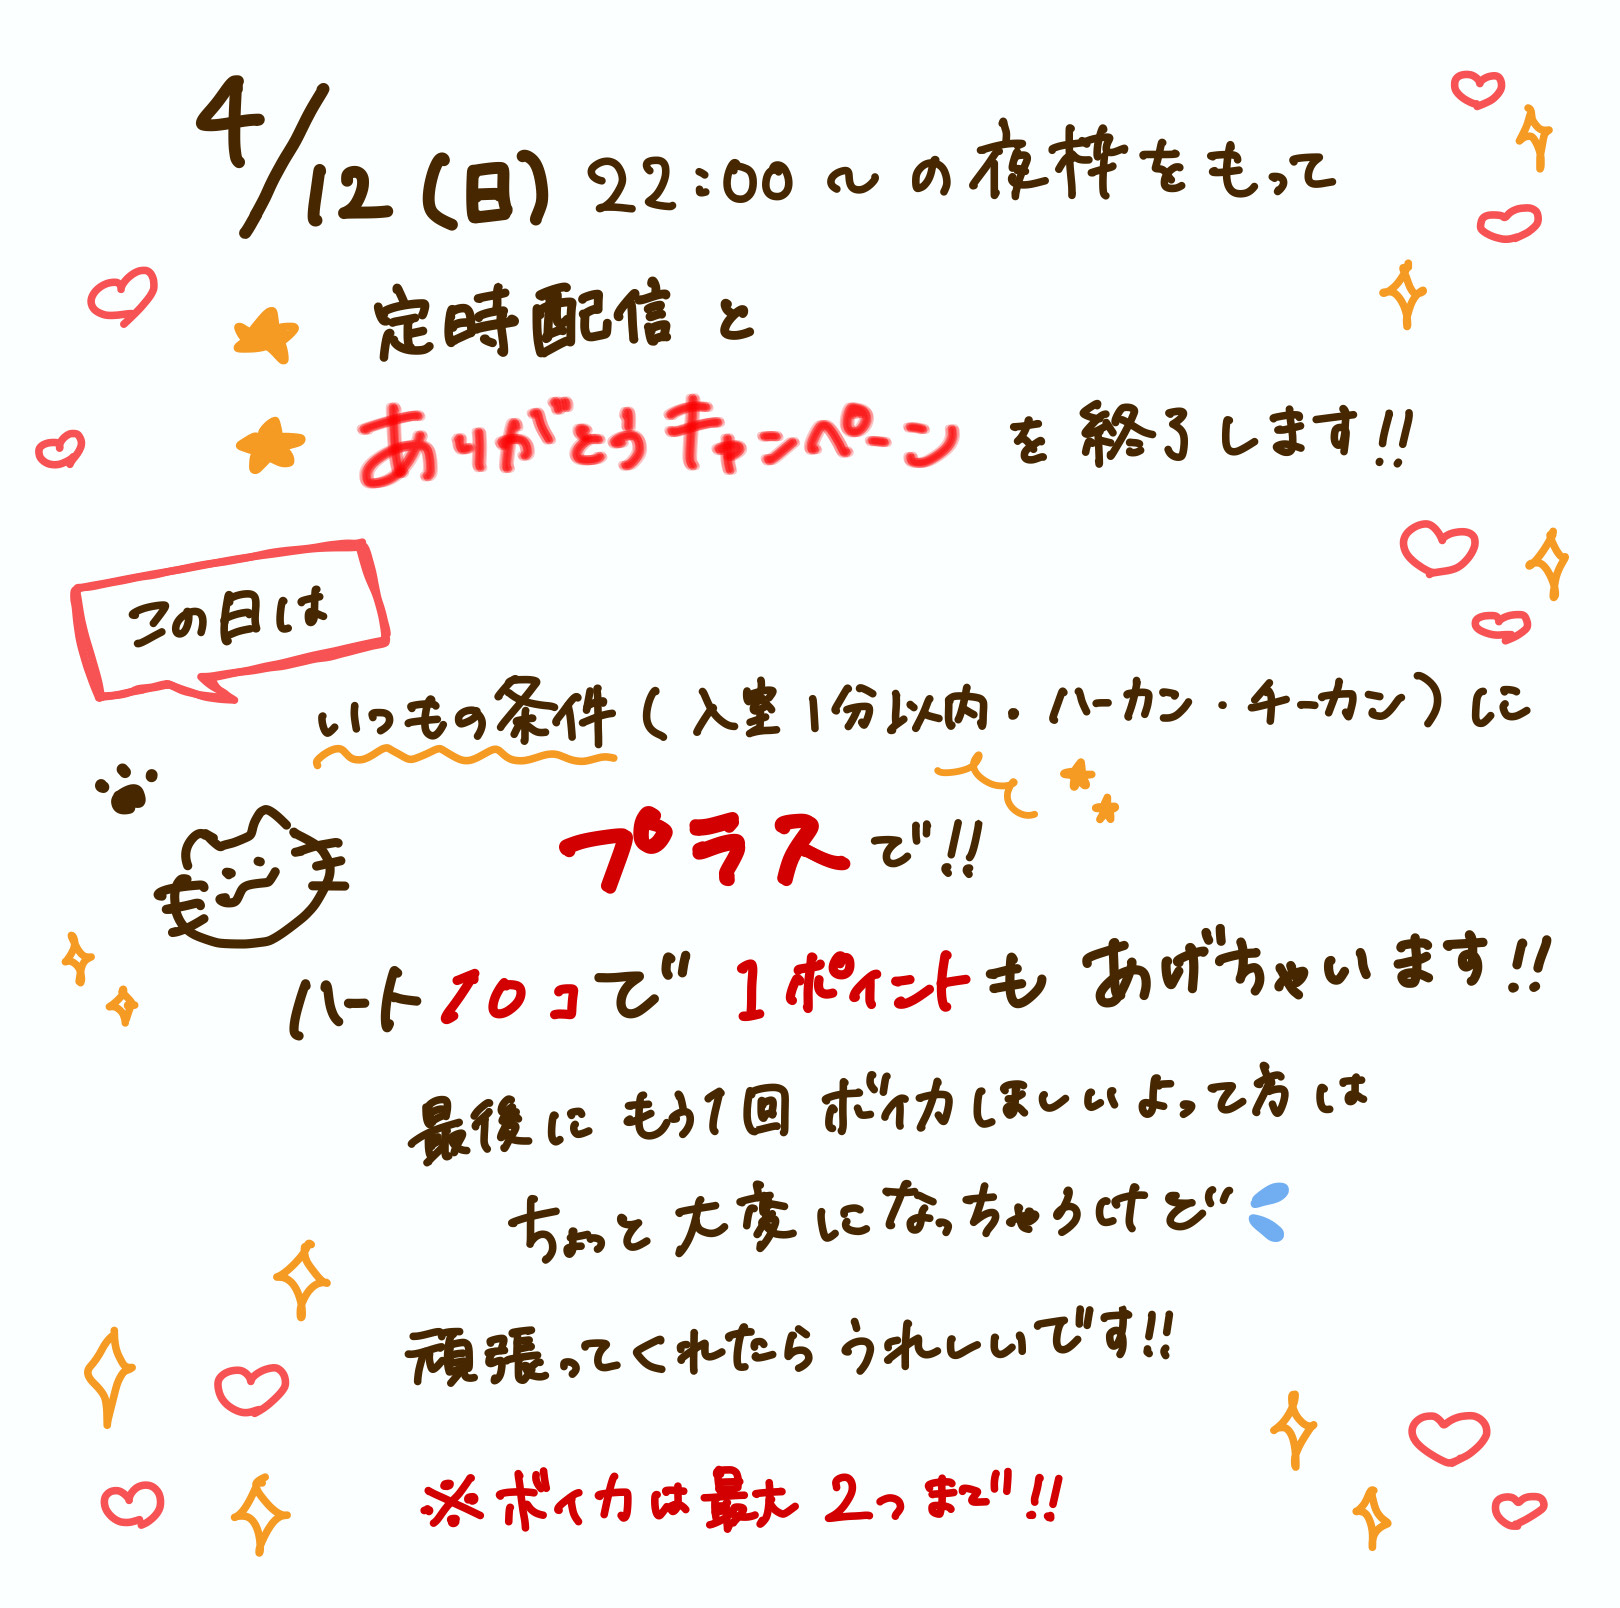 4/12(日) 22:00〜の夜枠をもって
定時配信と
ありがとうキャンペーンを終了します!!
この日は
いつもの条件(入室1分以内・ハーカン・チーカン)に
プラスで!!
ハート10コで1ポイントもあげちゃいます!!
最後にもう1回ボイカほしいよって方は
ちょっと大変になっちゃうけど
頑張ってくれたらうれしいです!!
※ボイカは最大2つまで!!